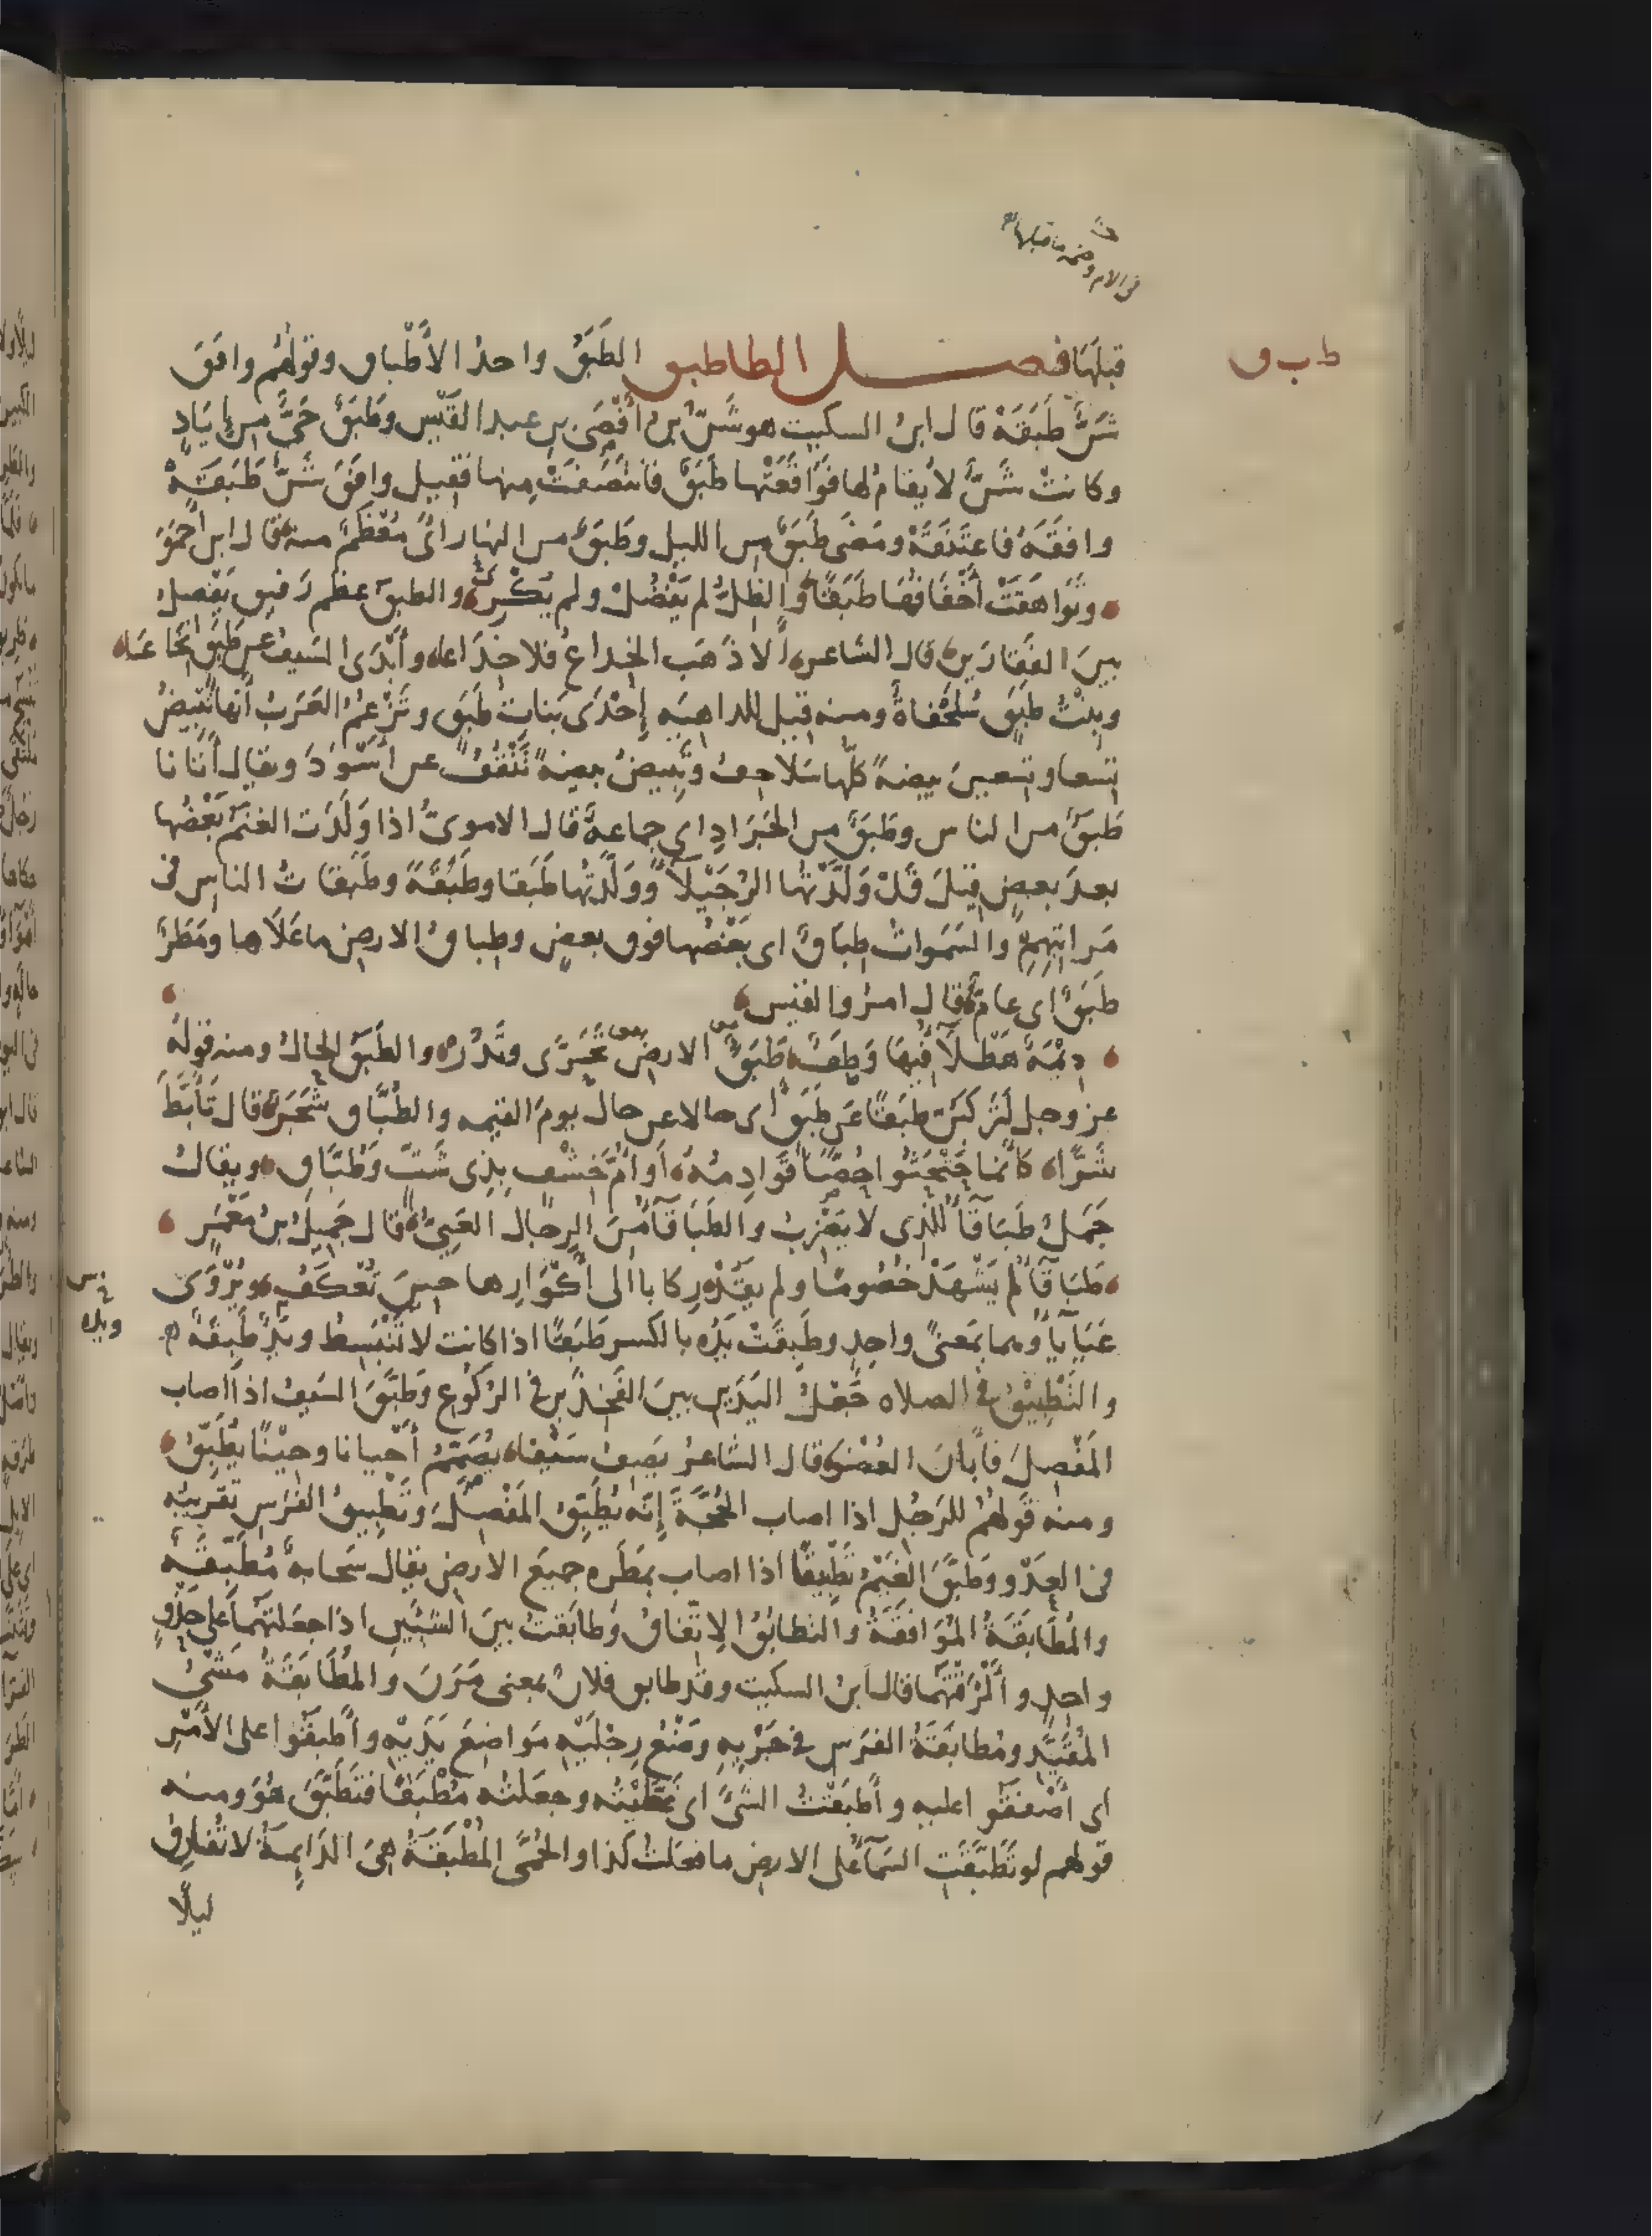 ط ب ق
قبلها فصل الطا طبق الطَبَقُ واحدُ الأَطْباق وقولهُم وافَقَ
شَنٌّ طَبَقَهْ قال ابنُ السكيت هو شَنُّ بنُ أَفْصَى بن عبد القَيْس وطَبَقٌ حَيٌّ من إيَادٍ
وكانتْ شَنٌّ لا يُقامُ لها فوَاقَعَتْها طَبَقٌ فانتَصَفَتْ مِنها فقيل وافَقَ شَنٌّ طَبَقَهْ
وافَقَهُ فاعتَنَقَهْ ومَضَى طَبَقٌ من الليل وطَبَقٌ من النهار أىْ مُعْظَمٌ منه قال ابن أحمَرَ
وتَوَاهَقَتْ أَخْفَافُها طَبَقًا وَالظِلُّ لم يَفْضُلْ ولم يُكْرِ والطبق عظم رَقيق يَفْصِل
بينَ الفَقَارَين قال الشاعر أَلا ذَهَبَ الخِداعُ فلا خِدَاعا وأَبْدَى السَيفُ عن طَبَقٍ نُخاعَا
وبِنْتُ طَبَقٍ سُلَحْفاةٌ ومنه قيل للداهيه إِحْدَى بَناتِ طَبَقٍ وتَزْعُمُ العَرَبُ أنها تَبيضُ
تِسعا وتسعينَ بيضةً كلُّها سَلاحِفُ وتَبِيضُ بيضةً تَنْقُفُ عن أَسْوَدَ ويقال أَتانا
طَبَقٌ من الناس وطَبَقٌ من الجَرَادِ اى جماعةٌ قال الاموىُّ اذا وَلَدَت الغَنَمُ بَعْضُها
بعدَ بعضٍ قيلَ قَدْ وَلَّدْتُها الرُجَيْلاءَ ووَلَّدْتُها طَبَقا وطَبَقَةً وطَبَقاتُ الناسِ فى
مَراتِبِهِمْ والسَمَواتُ طِبَاقٌ اى بَعْضُها فوق بعضٍ وطِباقُ الارضِ ما عَلَاها ومَطَرٌ
طَبَقٌ اى عامٌّ قال امرؤ القيس
دِيْمَةٌ هَطْلَاءُ فِيهَا وَطَفٌ طَبَقُ الارضِ تَحَرَّى وتَدُرّ والطَبَقُ الحالُ ومنه قولُهُ
عز وجل لَتَرْكَبُنَّ طَبَقًا عَن طَبَقٍ اى حالا عن حال يومَ القيمه والطُبَّاق شَجَرٌ قال تَأَبَّطَ
شَرًّا كأنّما حَثْحَثُوا حُصًّا قَوَادِمُهُ أَو أُمَّ خِشْفٍ بِذِى شَثٍّ وَطُبَّاقِ ويقالُ
جَمَلٌ طَبَاقَاءُ للذى لا يَضْرِبُ والطَبَاقَاءُ مِنَ الرِجَال العَيِىُّ قال جَمِيلُ بنُ مَعْمَرٍ
طَبَاقَاءُ لم يَشْهَدْ خُصُومًا ولم يَقُدْ رِكَابا الى أَكْوَارِها حينَ تُعْكَفُ ويُرْوَى
عَيَايَاءُ وهما بمَعنىً واحِدٍ وطَبِقَتْ يَدُه بالكسر طَبَقًا اذا كانت لا تَنْبَسِطُ ويَدٌ طَبِقَةٌ
ويده
والتَطْبِيْقُ فى الصلاه جَعْلُ اليَدَين بينَ الفَخِذَين فى الرُكُوع وطَبَّقَ السَيفُ اذا اصاب
المَفْصِلَ فأَبانَ العُضْوَ قال الشاعرُ يَصِفُ سَيْفا يُصَمِّمُ أَحْيانا وحِيْنًا يُطَبِّقُ
ومنه قَولهُم للرَجُل اذا اصاب الحُجَّةَ إنّه يُطَبِّقُ المَفْصِلَ وتَطْبِيقُ الفَرَسِ تَقْرِيبُه
فى العَدْو وطَبَّقَ الغَيْمُ تَطْبِيقًا اذا اصاب بمَطَره جميعَ الارضِ يقال سَحابةٌ مُطَبِّقَةٌ
والمُطَابَقَةُ المُوَافَقَةُ والتطابُقُ الاِتّفاقُ وطابَقتُ بينَ الشيئَينِ اذا جعَلتَهما على حَذْوٍ
واحِدٍ وأَلْزَقْتَهُما قال ابنُ السكيت وقد طابق فلانٌ بمعنى مَرَنَ والمُطَابَقَةُ مَشْىُ
المُقَيَّدِ ومُطابَقَةُ الفَرَسِ فى جَرْيِهِ وَضْعُ رِجْلَيْهِ مَوَاضِعَ يَدَيْهِ وأَطبَقُوا على الأَمْرِ
اى أَصْفَقُوا عليه وأَطبَقْتُ الشىْءَ اى غَطَّيْتُه وجعَلتُه مُطْبَقًا فتَطَبَّقَ هُوَ ومنه
قولهم لو تَطَبَّقَتِ السَمَاءُ على الارضِ ما فعَلتُ كذا والحُمَّى المُطْبِقَةُ هِىَ الدَايِمَةُ لا تُفارِقُ
ليلًا